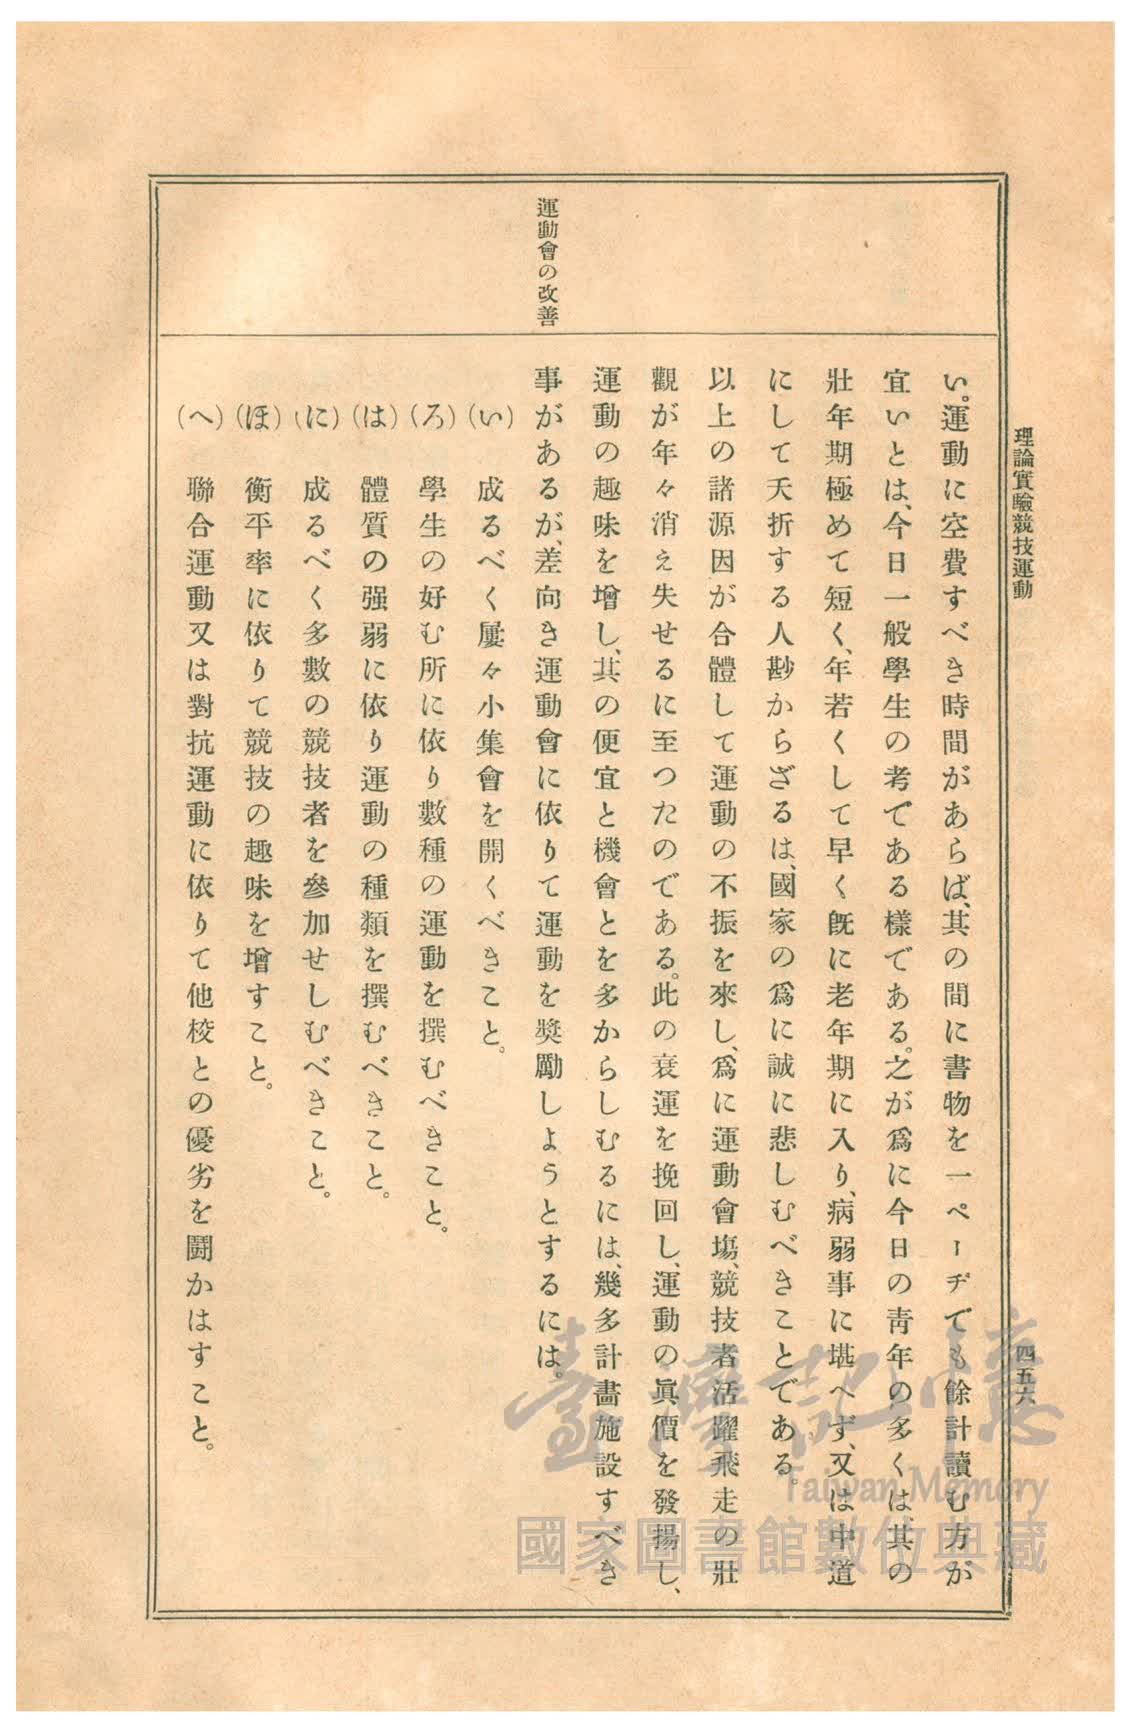 理論實驗競技運動
四五六
運動會の改善
い。運動に空費すべき時間があらば、其の間に書物を一ページでも餘計讀む方が
宜いとは、今日一般學生の考である樣である。之が爲に今日の靑年の多くは、其の
壯年期極めて短く、年若くして早く既に老年期に入り、病弱事に堪へず、又は中道
にして夭折する人尠からざるは、國家の爲に誠に悲しむべきことである。
以上の諸源因が合體して運動の不振を來し、爲に運動會塲、競技者活躍飛走の壯
觀が年々消え失せるに至つたのである。此の衰運を挽回し、運動の眞價を發揚し、
運動の趣味を增し、其の便宜と機會とを多からしむるには、幾多計畫施設すべき
事があるが、差向き運動會に依りて運動を奬勵しようとするには。
(い) 成るべく屢々小集會を開くべきこと。
(ろ) 學生の好む所に依り數種の運動を撰むべきこと。
(は) 體質の强弱に依り運動の種類を撰むべきこと。
(に) 成るべく多數の競技者を參加せしむべきこと。
(ほ) 衡平率に依りて競技の趣味を增すこと。
(へ) 聯合運動又は對抗運動に依りて他校との優劣を鬪かはすこと。
臺灣記憶
Taiwan Memory
國家圖書館數位典藏